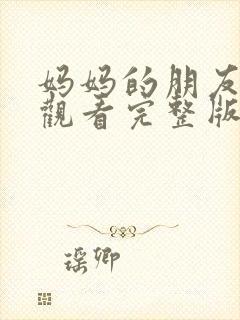 妈妈的朋友
觀看完整版
瑶卿